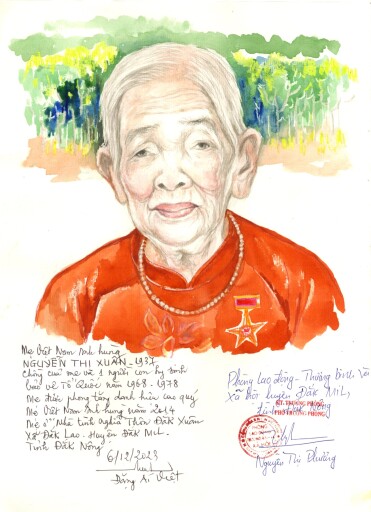 Mẹ Việt Nam Anh hùng
NGUYỄN THỊ XUÂN _ 1931
Chồng của mẹ và 1 người con hy sinh
bảo vệ Tổ Quốc năm 1968 - 1978
Mẹ được phong tặng danh hiệu cao quý
Mẹ Việt Nam Anh hùng năm 2014
Mẹ ở Nhà tình nghĩa Thôn Đăk Xuân
Xã Đăk Lao - Huyện Đăk Mil
Tỉnh Đăk Nông
6/12/2023
Đặng Ái Việt
Phòng Lao động - Thương Binh và
Xã hội huyện Đăk Mil,
tỉnh Đăk Nông
KT. TRƯỞNG PHÒNG
PHÓ TRƯỞNG PHÒNG
Nguyễn Thị Phường